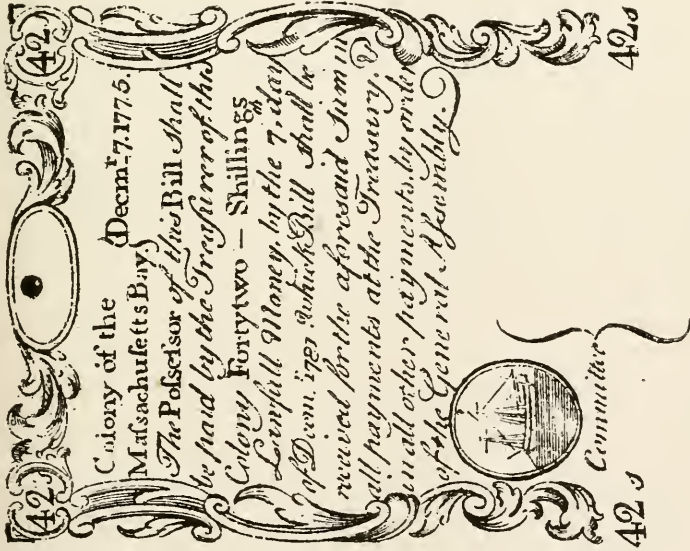 42 42
Colony of the
Maſsachuſetts Bay } Decm.r 7. 1775.
The Poſseſsor of this Bill shall
be paid by the Treaſurer of this
Colony Fortytwo — Shillings
Lawfull Money, by the 7.th day
of Decm.r 1781. which Bill shall be
received for the aforesaid Sum in
all payments at the Treasury,
in all other payments, by order
of the General Aſsembly.
Committee
42 s 42 s